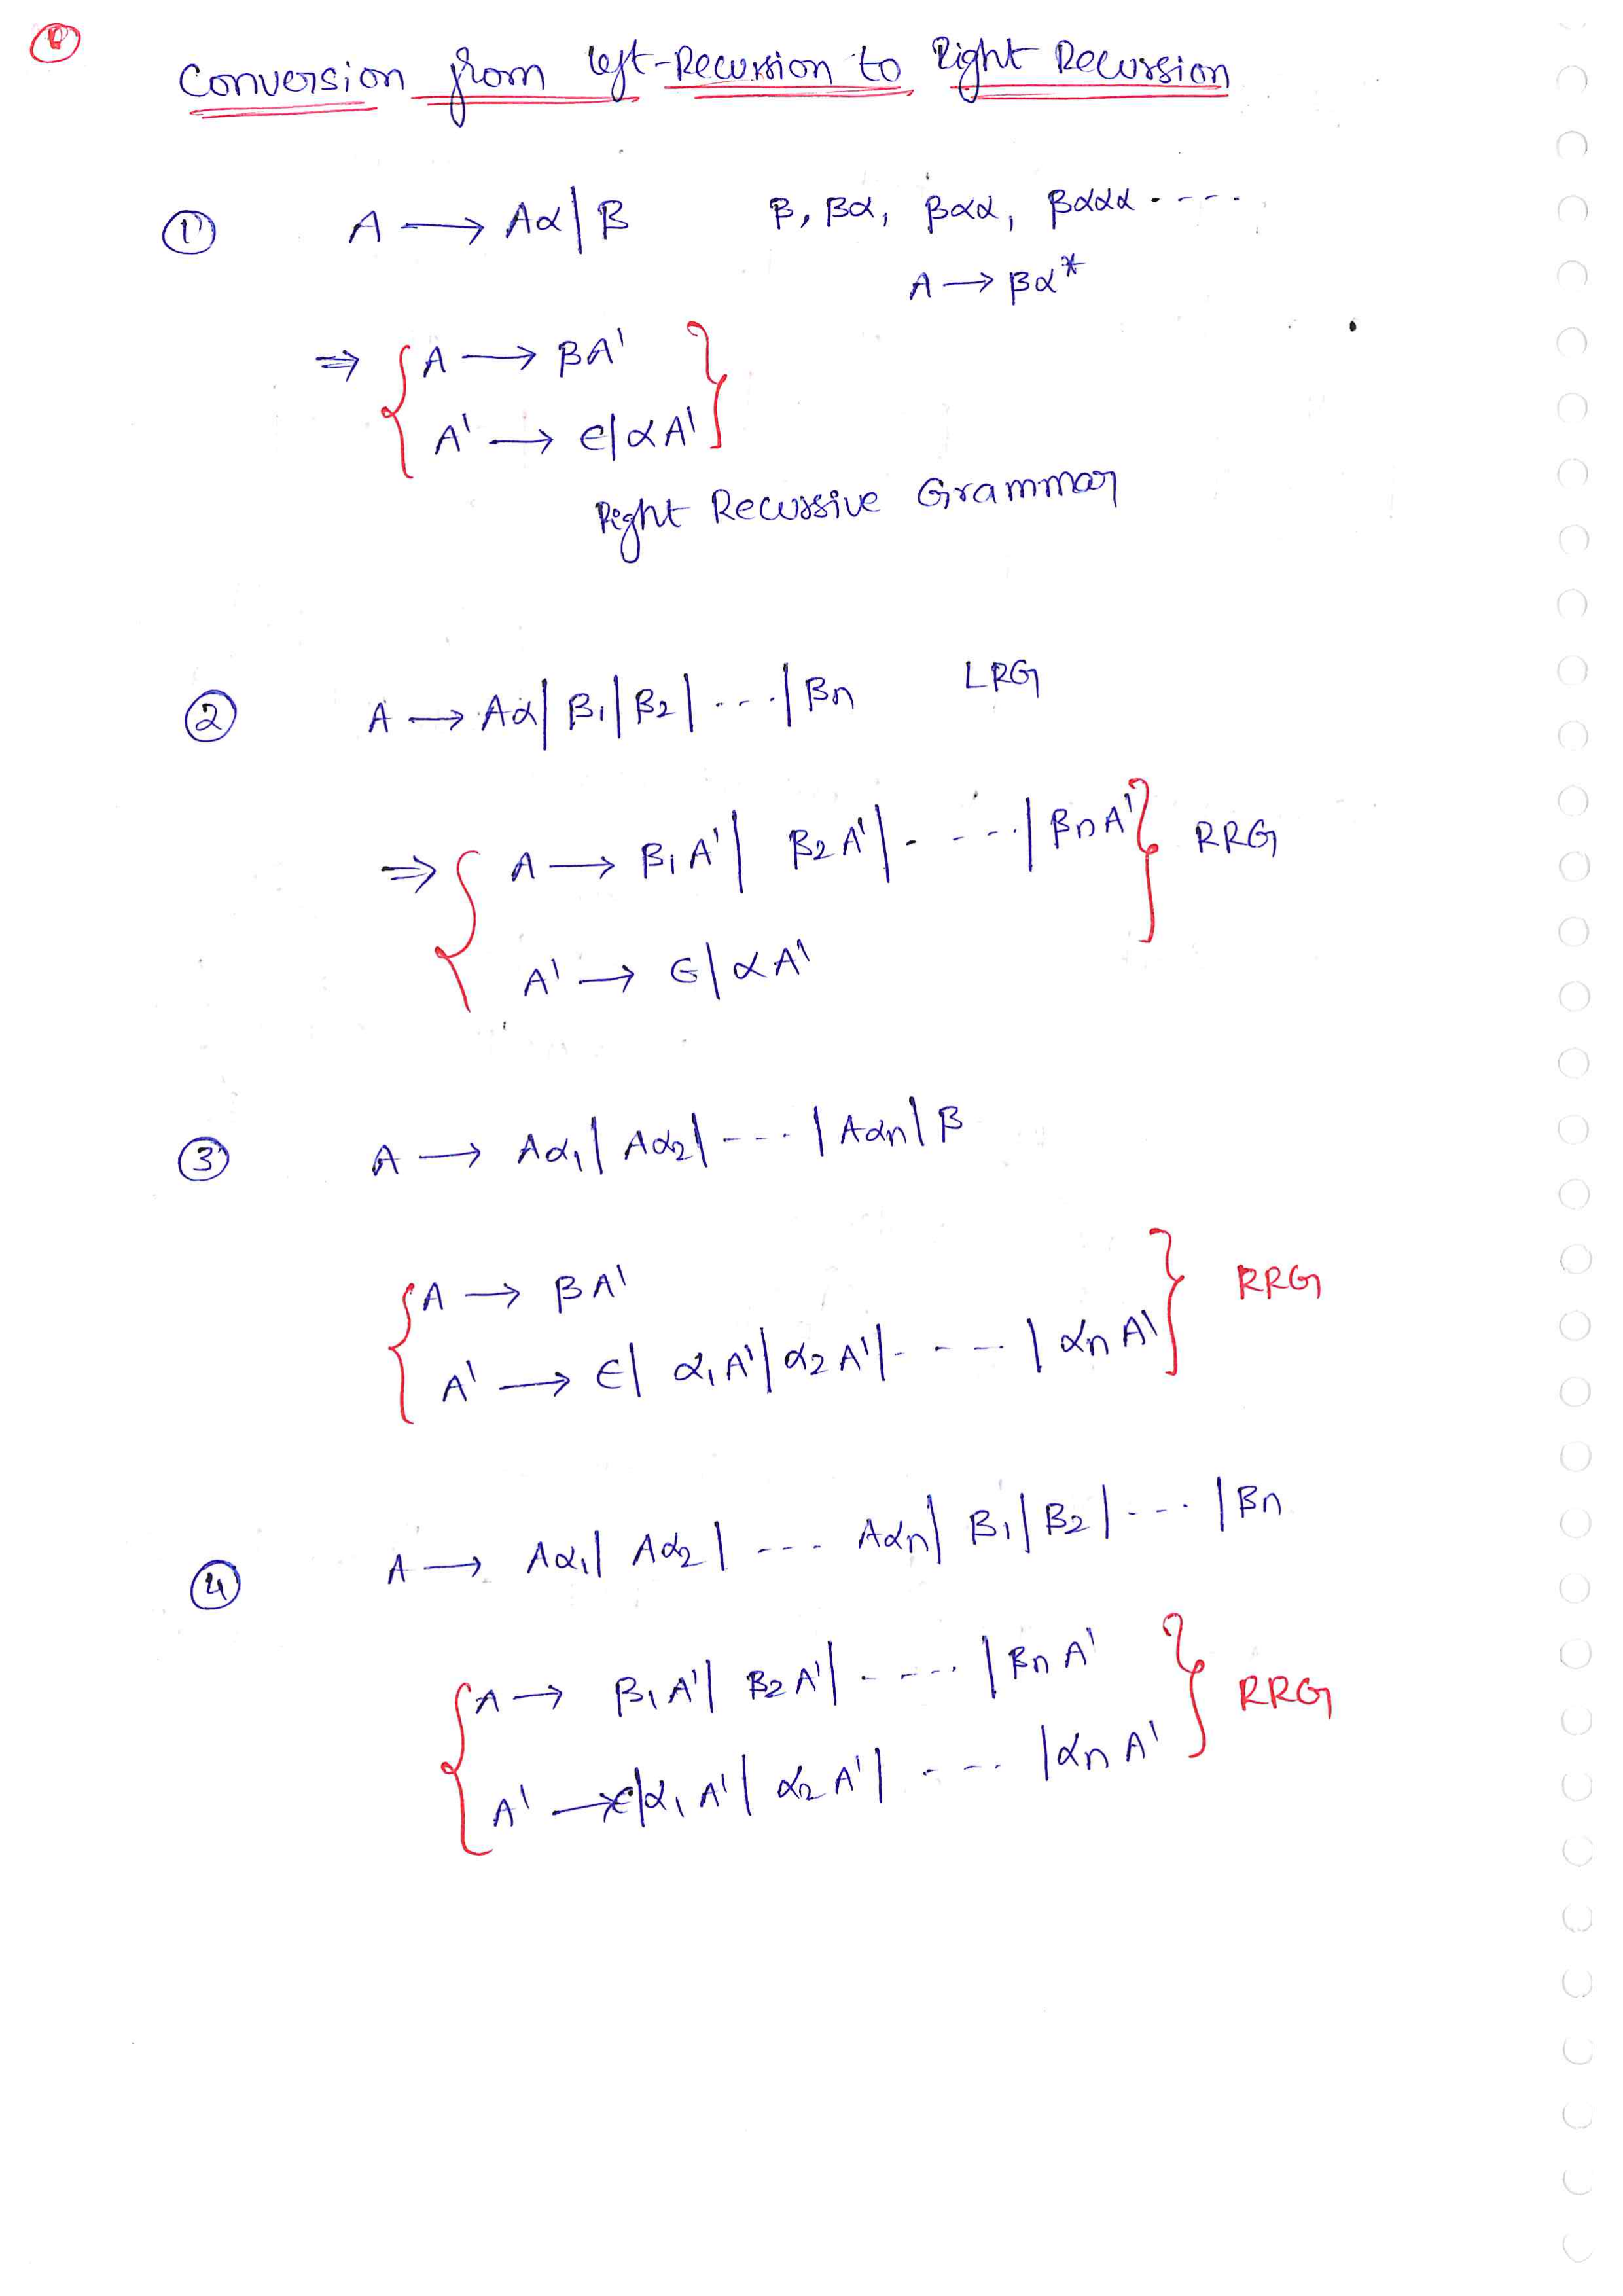 Conversion from left-Recursion to Right Recursion
① A → Aα | β    β, βα, βαα, βααα - - - -
A → βα*
⇒ { A → βA' }
A' → ϵ | αA'
Right Recursive Grammar
② A → Aα | β1 | β2 | ... | βn    LRG
⇒ { A → β1A' | β2A' | - - - - | βnA' } RRG
A' → ϵ | αA'
③ A → Aα1 | Aα2 | - - - . | Aαn | β
{ A → βA' } RRG
A' → ϵ | α1A' | α2A' | - - - - | αnA'
④ A → Aα1 | Aα2 | - - - . Aαn | β1 | β2 | - - - . | βn
{ A → β1A' | β2A' | - - - - . | βnA' } RRG
A' → ϵ | α1A' | α2A' | - - - . | αnA'